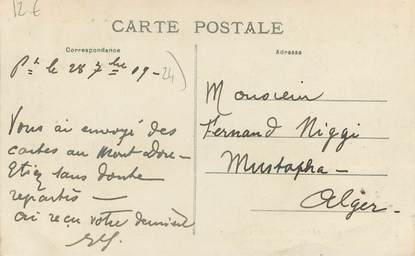 12 €
CARTE POSTALE
Correspondance
Adresse
le 28 7bre 09 - 24)
Vous ai envoyé des
cartes au Mont Dore -
Etiez sans doute
repartis -
ai reçu votre dernière
Monsieur
Fernand Niggi
Mustapha -
Alger -